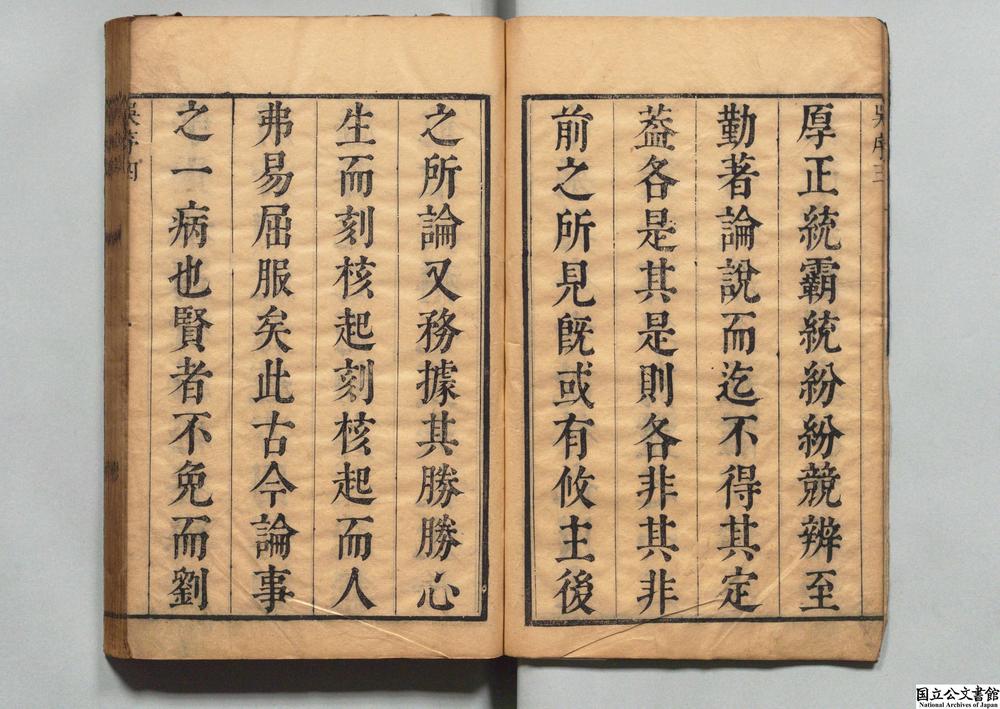 吳序三
厚正統霸統紛紛競辨至
勤著論說而迄不得其定
葢各是其是則各非其非
前之所見旣或有攸主後
之所論又務據其勝勝心
生而刻核起刻核起而人
弗易屈服矣此古今論事
之一病也賢者不免而劉
吳序四
国立公文書館
National Archives of Japan